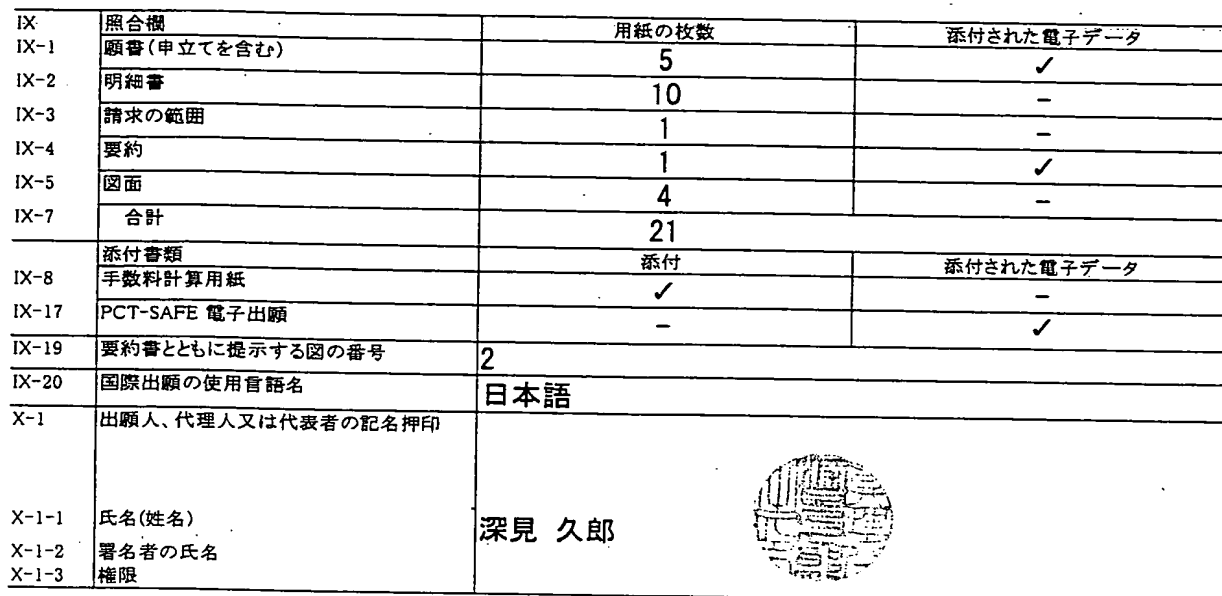 IX 照合欄 用紙の枚数 添付された電子データ
IX-1 願書(申立てを含む) 5 ✓
IX-2 明細書 10 -
IX-3 請求の範囲 1 -
IX-4 要約 1 ✓
IX-5 図面 4 -
IX-7 合計 21
添付書類 添付 添付された電子データ
IX-8 手数料計算用紙 ✓ -
IX-17 PCT-SAFE 電子出願 - ✓
IX-19 要約書とともに提示する図の番号 2
IX-20 国際出願の使用言語名 日本語
X-1 出願人、代理人又は代表者の記名押印
X-1-1 氏名(姓名) 深見 久郎
X-1-2 署名者の氏名
X-1-3 権限